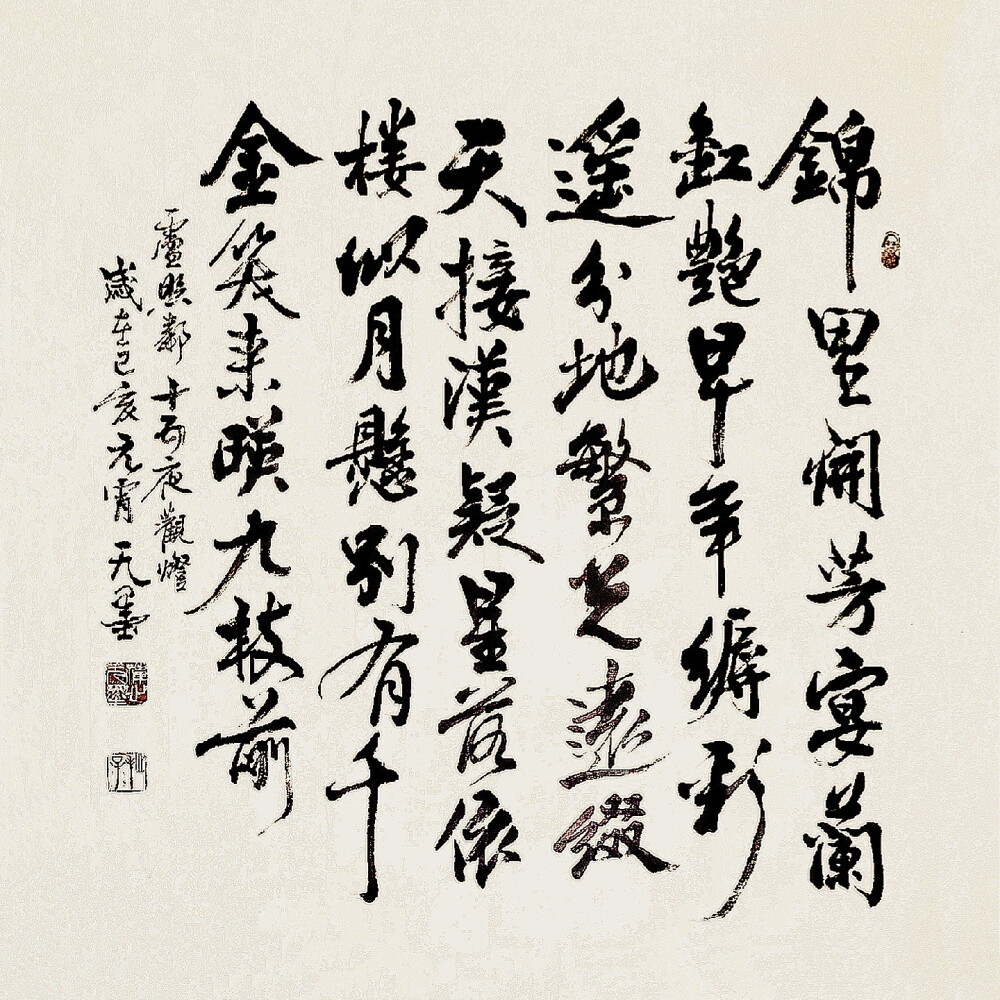 錦里開芳宴蘭
缸艶早年縟彩
遥分地繁光遠綴
天接漢疑星落依
楼似月懸別有千
金笑来暎九枝前
盧照鄰十五夜觀燈
歲在己亥元宵 墨